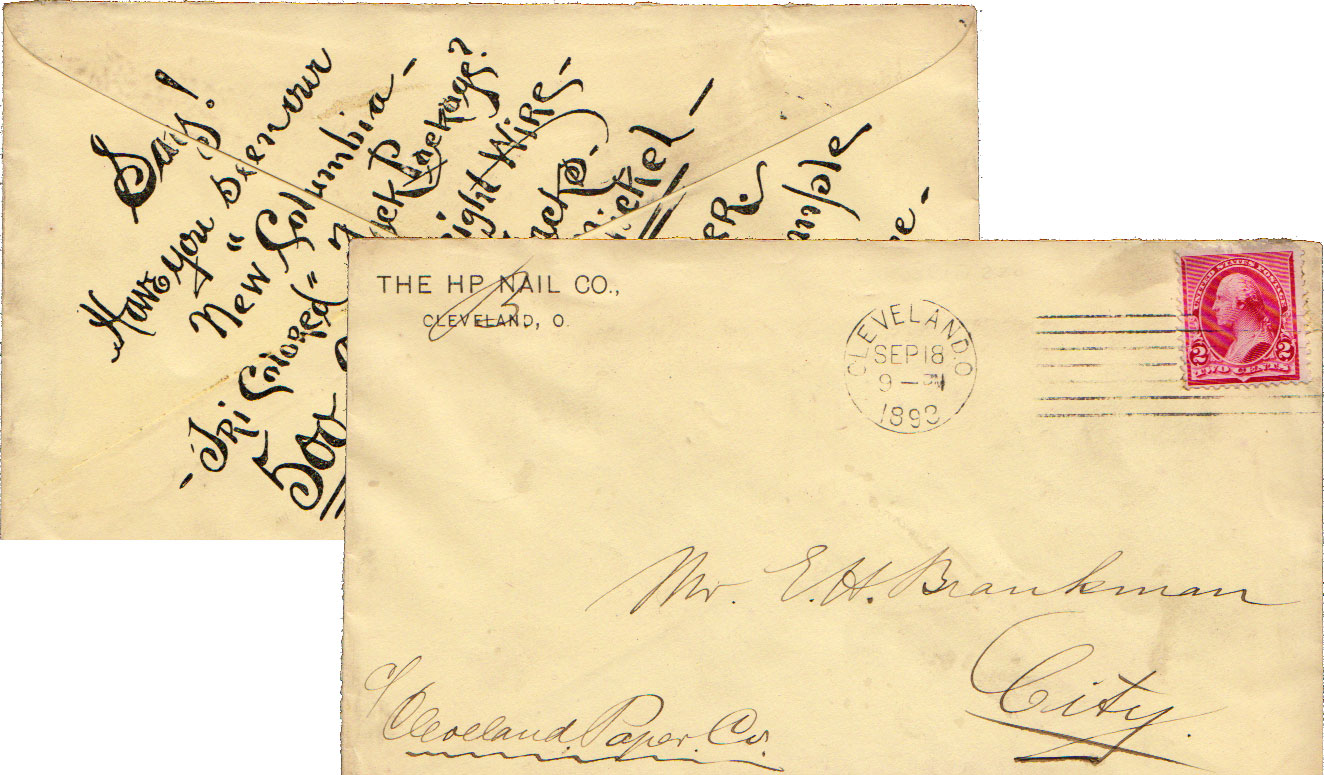 Say!
Have you seen our
New "Columbia-
-Tri Colored" Tack Package?
500 ight Wire-
acks.
ickel-
ER.
ample
e-
THE HP NAIL CO.,
CLEVELAND, O.
CLEVELAND.O.
SEP 18
9 —
1893
UNITED STATES POSTAGE
2 2
TWO CENTS
Mr. E.H. Brankman
City.
c/ Cleveland Paper Co.